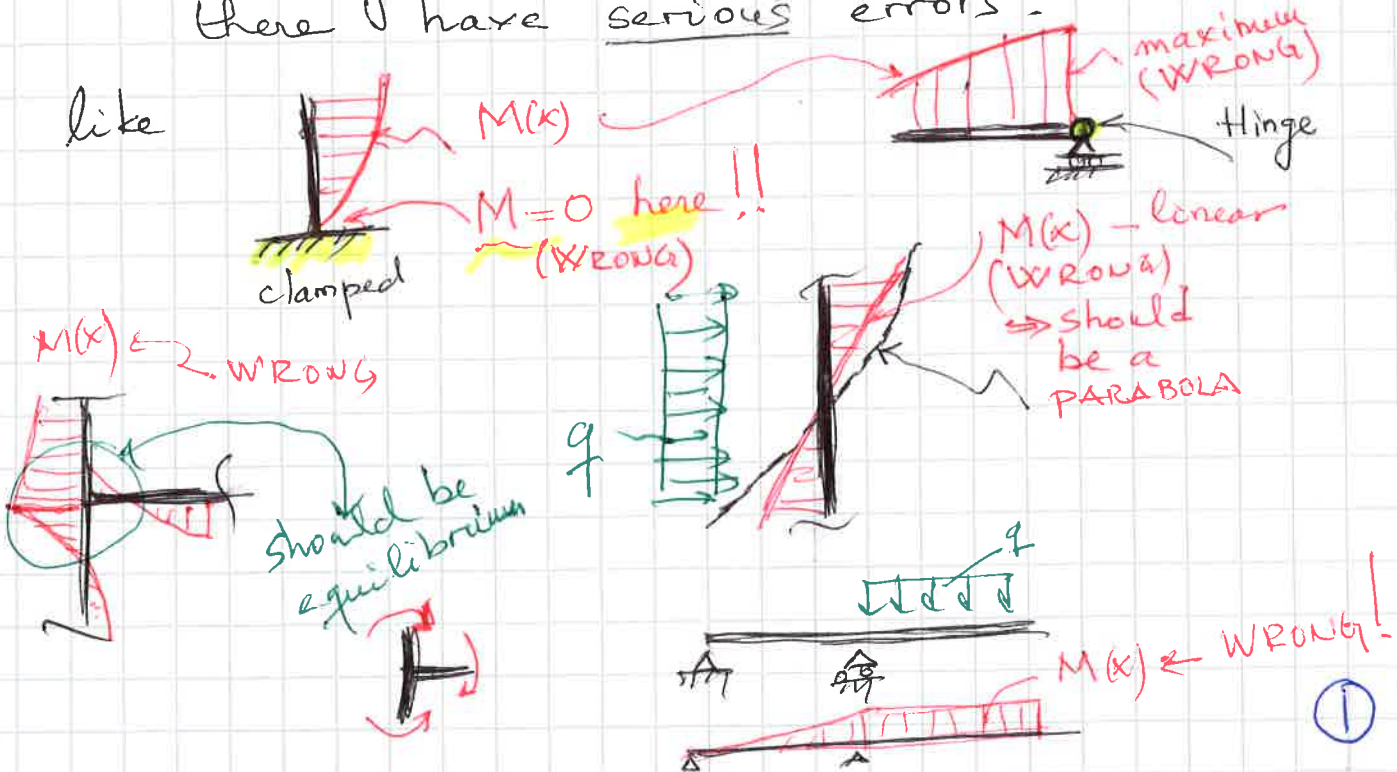 there I have serious errors.
like
M(x)
maximum
(WRONG)
Hinge
M=0 here!!
(WRONG)
clamped
M(x) - linear
(WRONG)
⇒ should
be a
PARABOLA
M(x) ← WRONG
q
should be
equilibrium
q
M(x) ← WRONG!
1